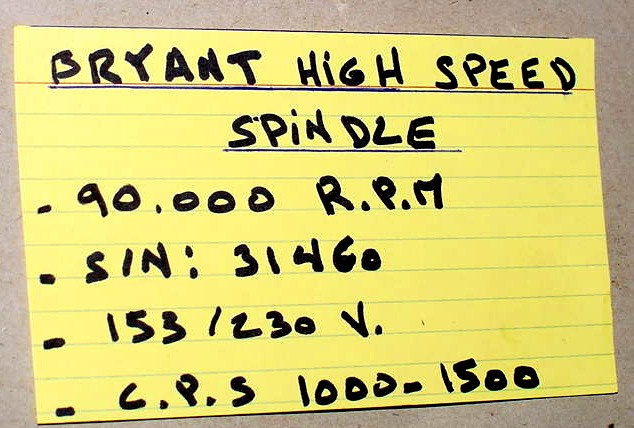 BRYANT HiGH SPEED
SPiNDLE
- 90.000 R.P.M
- S/N: 31460
- 153/230 V.
- C.P.S 1000-1500